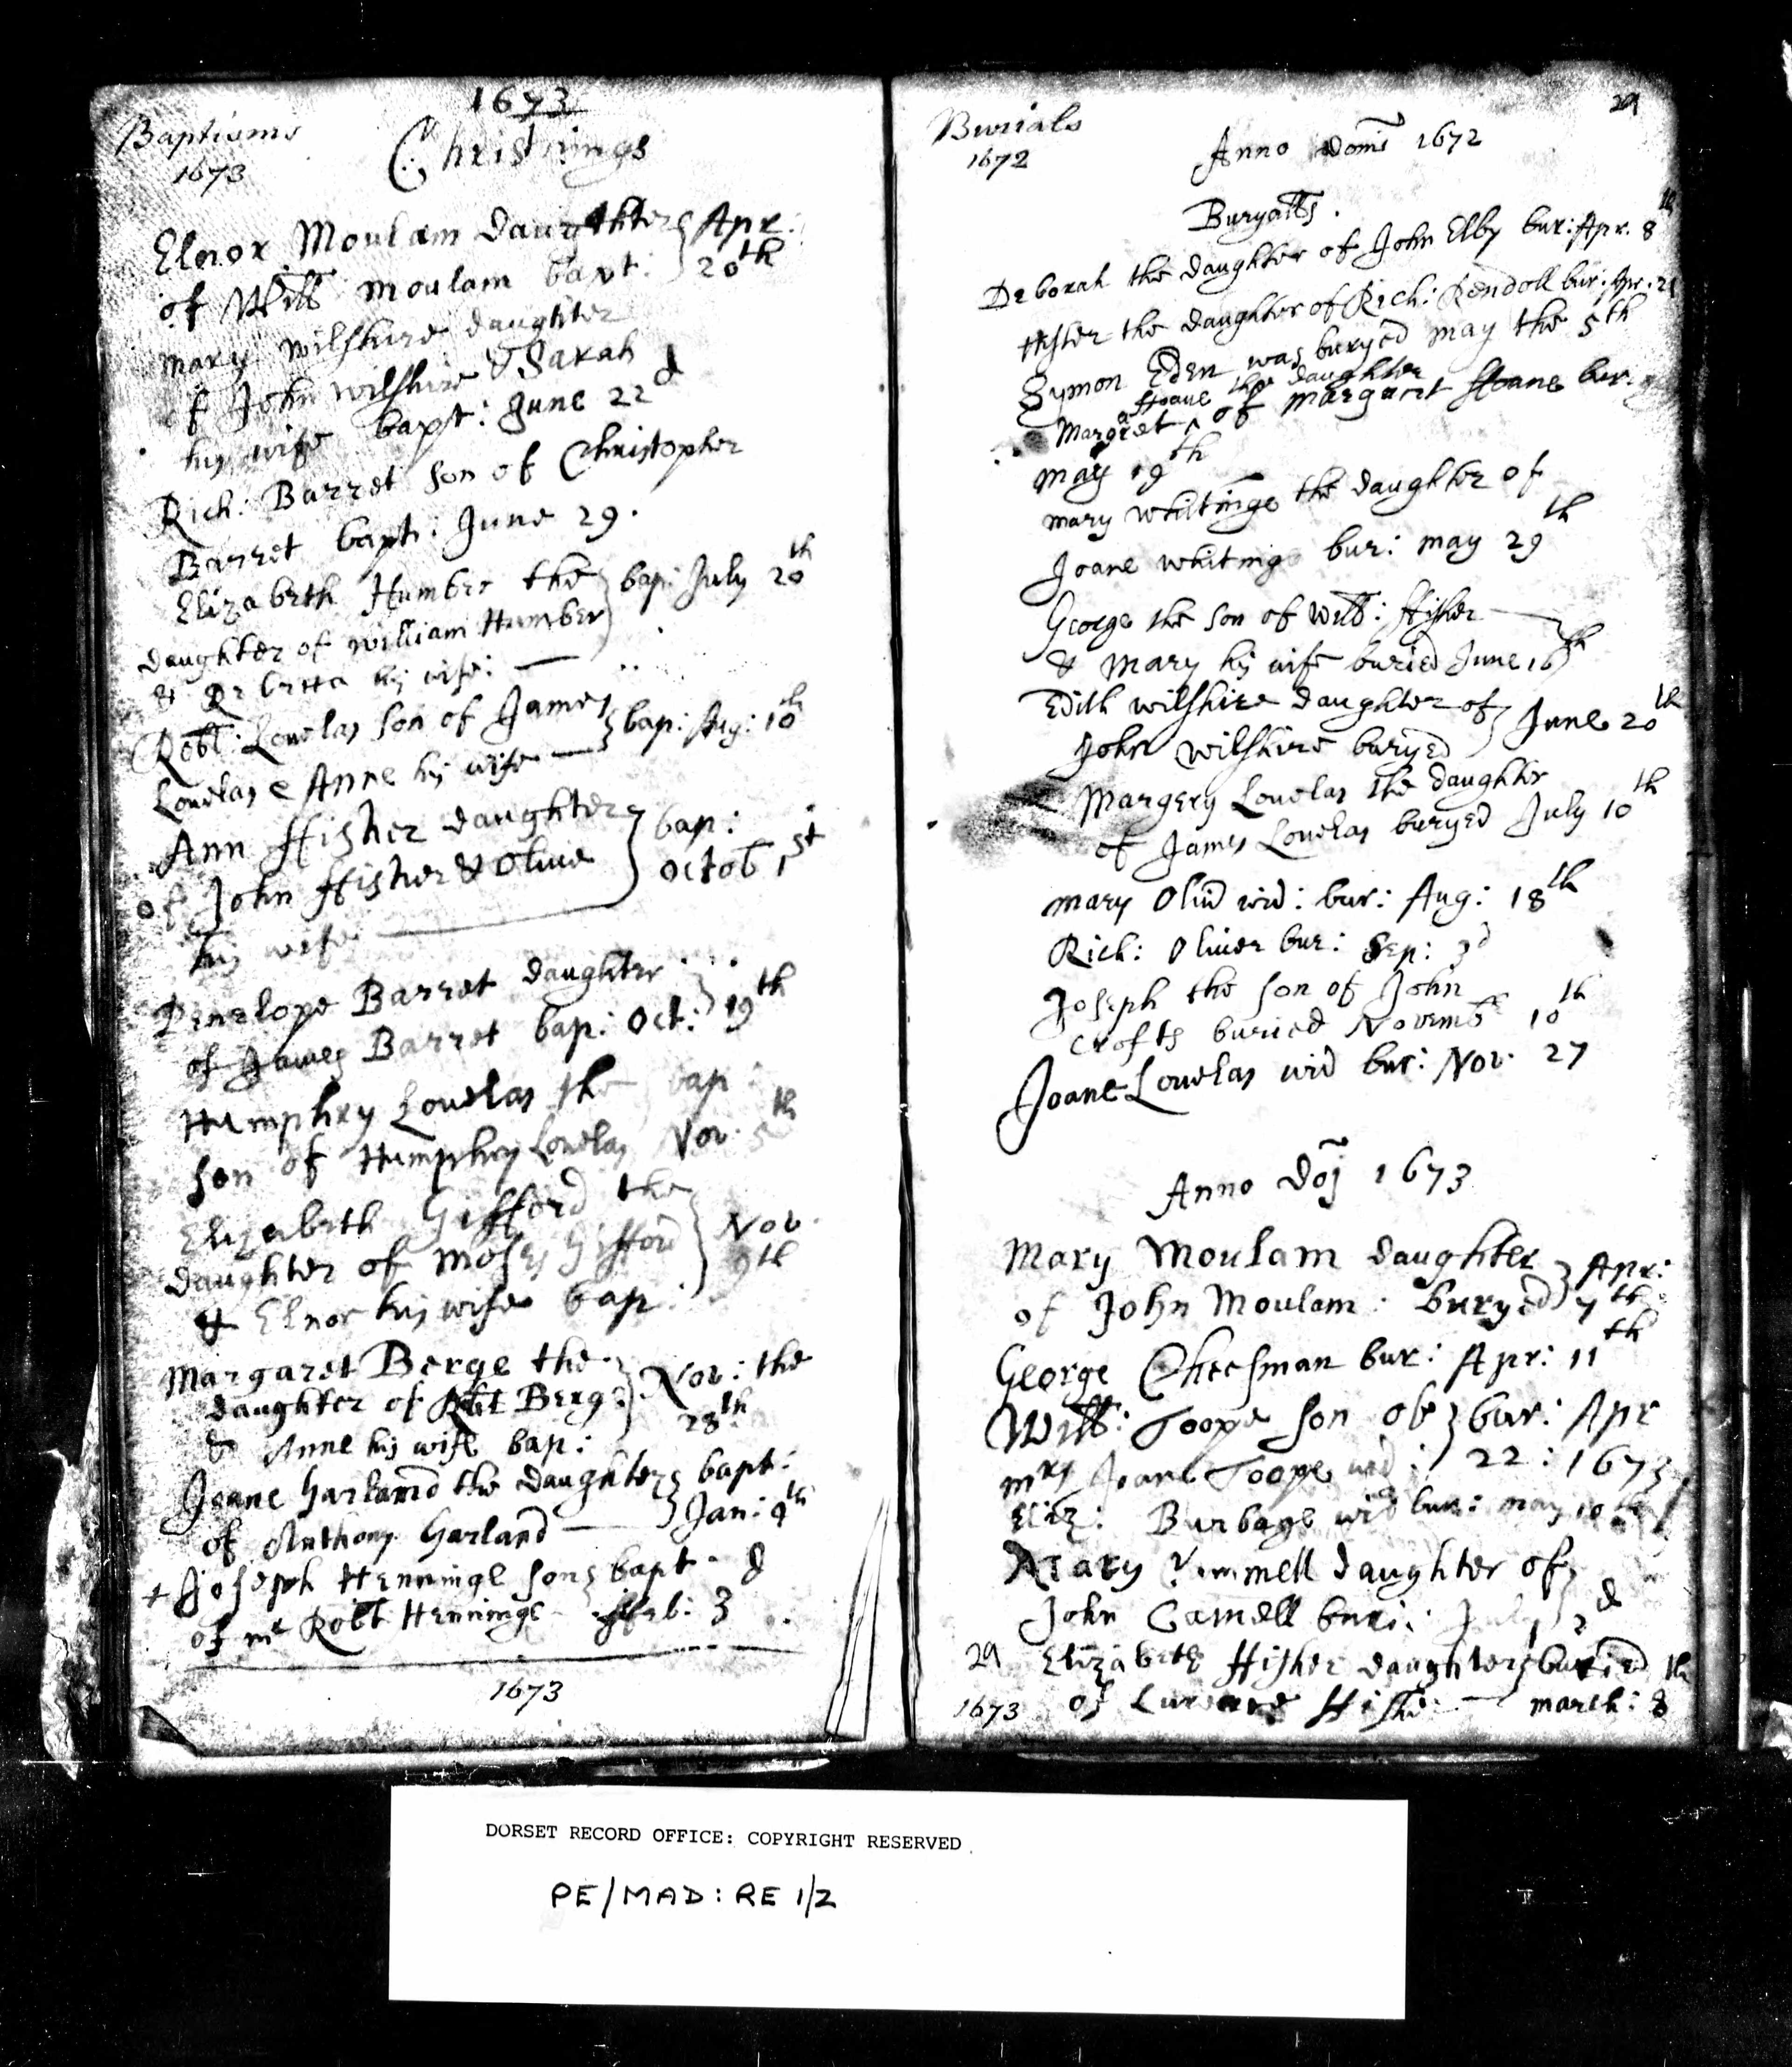 1673
Baptisms
1673
Christnings
Elnor Moulam Daughter } Apr:
of Will Moulam bapt: } 20th
Mary Wilshire daughter
of John Wilshire & Sarah
his wife bapt: June 22d
Rich: Barret son of Christopher
Barret bapt: June 29.
Elizabeth Humber the } bap: July 20th
daughter of William Humber
& his wife:
Robt: Louelas son of James } bap: Aug: 10th
Louelas & Anne his wife
Ann ffisher daughter } bap:
of John ffisher & Olive } Octob 1st
his wife
Penelope Barret daughter
of James Barret bap: Oct: 19th
Humphry Louelas the bap:
son of Humphry Louelas Nov. 5th
Elizabeth Gifford the } Nov.
daughter of Moses Gifford } 9th
& Elnor his wife bap:
Margaret Berge the } Nov: the
daughter of Robt Berge } 28th
& Anne his wife bap:
Joane Garland the daughter } bapt:
of Anthony Garland } Jan: 9th
+ Joseph Henninge son } bapt
of mr Robt Henninge ffeb: 3d
1673
29
Burials
1672
Anno Domi 1672
Buryalls.
Deborah the daughter of John Elby bur: Apr. 8th
Hester the daughter of Rich: Kendoll bur: Apr. 21
Symon Eden was buryed may the 5th
ffoane the daughter
Margret ^ of Margaret ffoane bur:
May 19th
mary Whitinge the daughter of
Joane Whiting bur: may 29th
George the son of Will: ffisher
& Mary his wife buried June 16th
Edith Wilshire daughter of } June 20th
John Wilshire buryed
Margery Louelas the daughter
of James Louelas buryed July 10th
mary Olivd wid: bur: Aug: 18th
Rich: Oliver bur: Sep: 3d
Joseph the son of John
Crofts buried Novembr 10th
Joane Louelas wid bur: Nov. 27
Anno Doj 1673
Mary Moulam daughter } Apr:
of John Moulam: buryed } 7th
George Cheesman bur: Apr: 11th
Will: Toope son of } bur: Apr
mrs Joane Toope wid: } 22: 1673
Eliz: Burbage wid bur: may 10th
Mary daughter of
John Camell buri: July 2d
29 Elizabeth ffisher daughter } buried
1673 of ffisher march: 8th
DORSET RECORD OFFICE: COPYRIGHT RESERVED
PE/MAD: RE 1/2